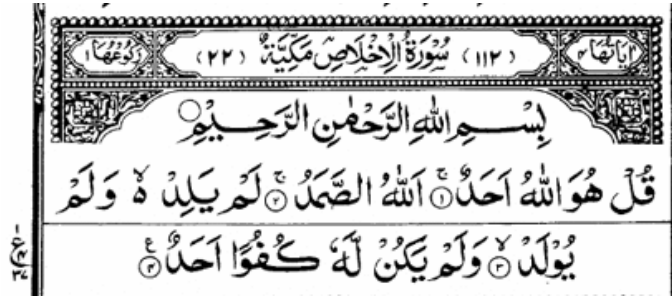 اٰيَاتُهَا ٤ (١١٢) سُوْرَةُ الْاِخْلَاصِ مَكِّيَّةٌ (٢٢) رُكُوْعُهَا ١
بِسْمِ اللهِ الرَّحْمٰنِ الرَّحِيْمِ
قُلْ هُوَ اللهُ اَحَدٌ ۚ‏﴿١﴾ اَللهُ الصَّمَدُ ۚ‏﴿٢﴾ لَمْ يَلِدْ ەۙ وَلَمْ
يُوْلَدْ ۙ‏﴿٣﴾ وَلَمْ يَكُنْ لَّهٗ كُفُوًا اَحَدٌ ‏﴿٤﴾